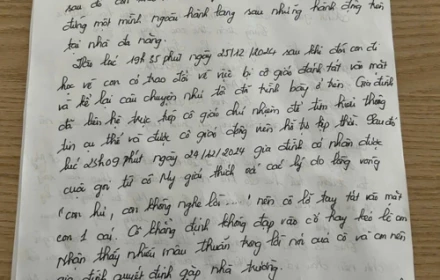 sau đó con
đứng một mình ngoài hành lang sau những hành động trên
tại nhà đa năng.
Đến lúc 19h 35 phút ngày 25/12/2024 sau khi đón con đi
học về con có trao đổi về việc bị cô giáo đánh tát vào mặt
và kể lại câu chuyện như tôi đã trình bày ở trên. Gia đình
đã liên hệ trực tiếp cô giáo chủ nhiệm để tìm hiểu thông
tin cụ thể và được cô giáo động viên hỗ trợ kịp thời. Sau đó
lúc 23h09 phút ngày 27/12/2024 gia đình có nhận được
cuộc gọi từ cô My giải thích với các lý do lòng vòng
"con hư, con không nghe lời ...." nên cô lỡ tay tát vào mặt
con 1 cái. Cô khẳng định không đập vào cổ hay kéo lê con
Nhận thấy nhiều mâu thuẫn trong lời nói của cô và con nên
gia đình quyết định gặp nhà trường.